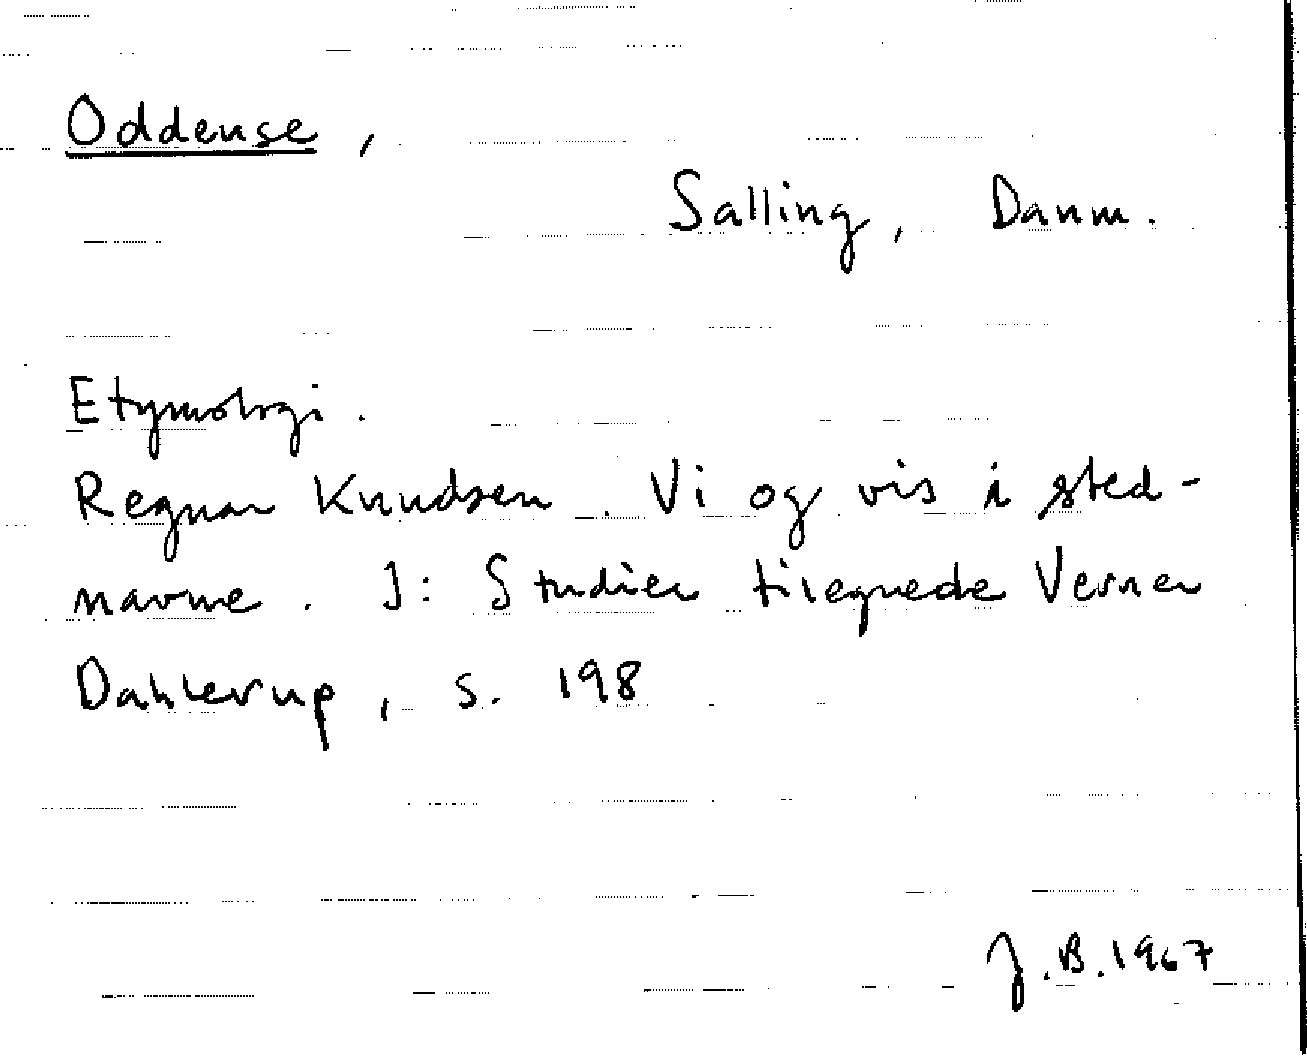 Oddense,
Salling, Danm.
Etymologi.
Regnar Knudsen. Vi og vis i sted-
navne. I: Studier tilegnede Verner
Dahlerup, s. 198
J.B.1967